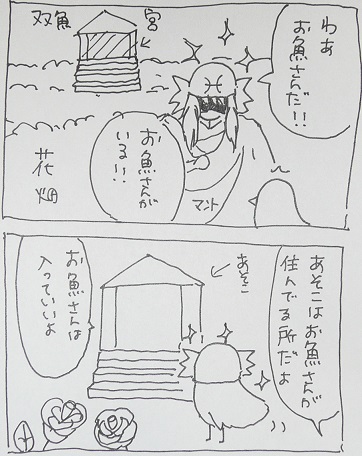 わぁ
お魚さんだ!!
双魚
宮
お魚さんが
いる!!
花畑
マント
あそこはお魚さんが
住んでる所だよ
あそこ
お魚さんは
入っていいよ